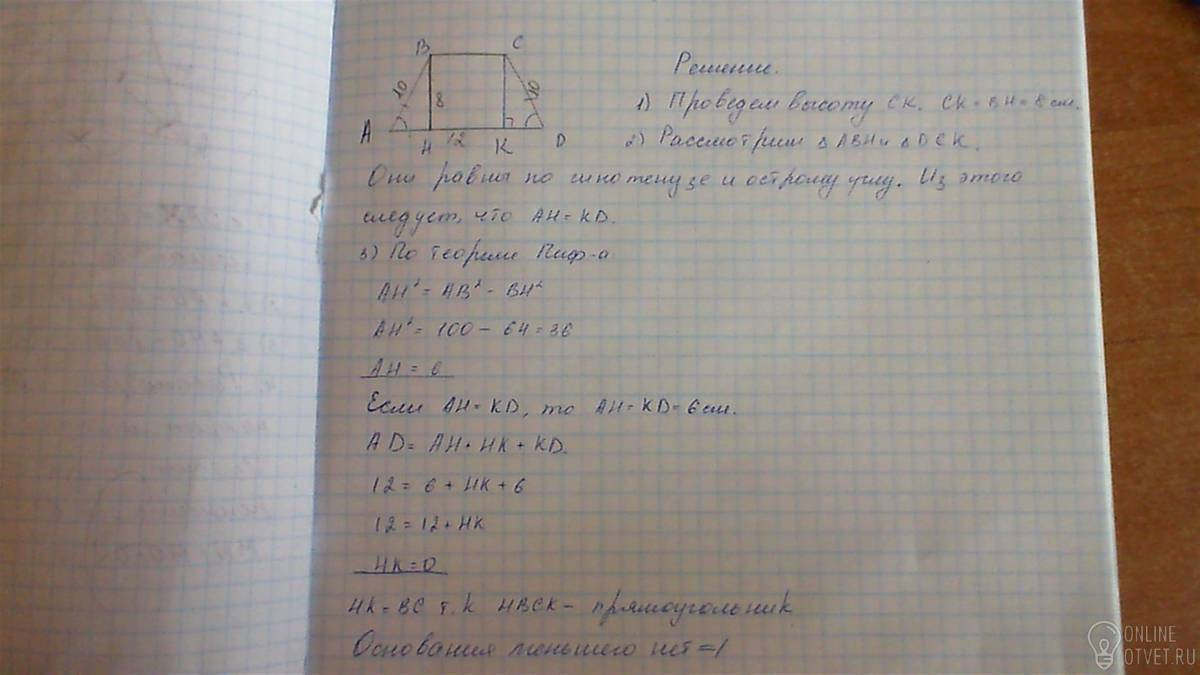 B C
10 8 10
A H 12 K D
Решение.
1) Проведем высоту CK. CK = BH = 8 см.
2) Рассмотрим △ ABH и △ DCK.
Они равны по гипотенузе и острому углу. Из этого
следует, что AH = KD.
3) По теореме Пиф-а
AH² = AB² - BH²
AH² = 100 - 64 = 36
AH = 6
Если AH = KD, то AH = KD = 6 см.
AD = AH + HK + KD.
12 = 6 + HK + 6
12 = 12 + HK
HK = 0
HK = BC т.к HBCK - прямоугольник
Основания меньшего нет =/
ONLINE
OTVET.RU